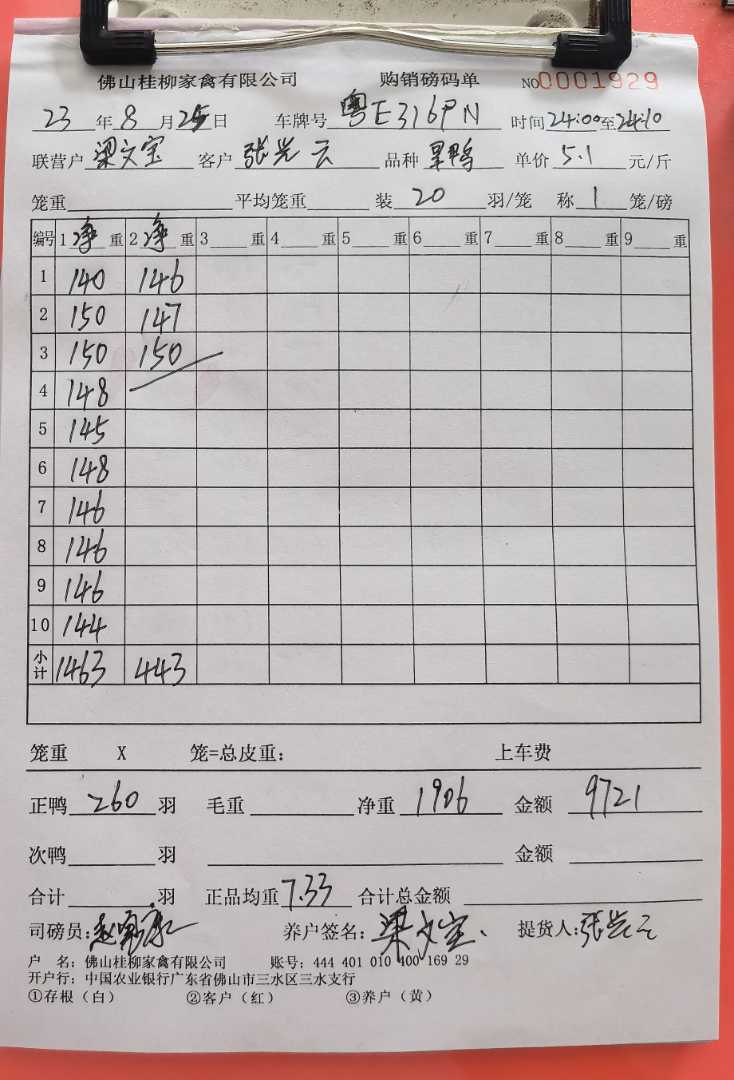 佛山桂柳家禽有限公司 购销磅码单 NO0001929
23 年 8 月 25 日 车牌号 粤E316PN 时间 24:00 至 24:10
联营户 梁文宝 客户 张光云 品种 旱鸭 单价 5.1 元/斤
笼重 平均笼重 装 20 羽/笼 称 1 笼/磅
编号 1 净 重 2 净 重 3 重 4 重 5 重 6 重 7 重 8 重 9 重
1 140 146
2 150 147
3 150 150
4 148
5 145
6 148
7 146
8 146
9 146
10 144
小计 1463 443
笼重 X 笼=总皮重： 上车费
正鸭 260 羽 毛重 净重 1906 金额 9721
次鸭 羽 金额
合计 羽 正品均重 7.33 合计总金额
司磅员： 养户签名：梁文宝 提货人：张光云
户 名：佛山桂柳家禽有限公司 账号：444 401 010 400 169 29
开户行：中国农业银行广东省佛山市三水区三水支行
①存根（白） ②客户（红） ③养户（黄）